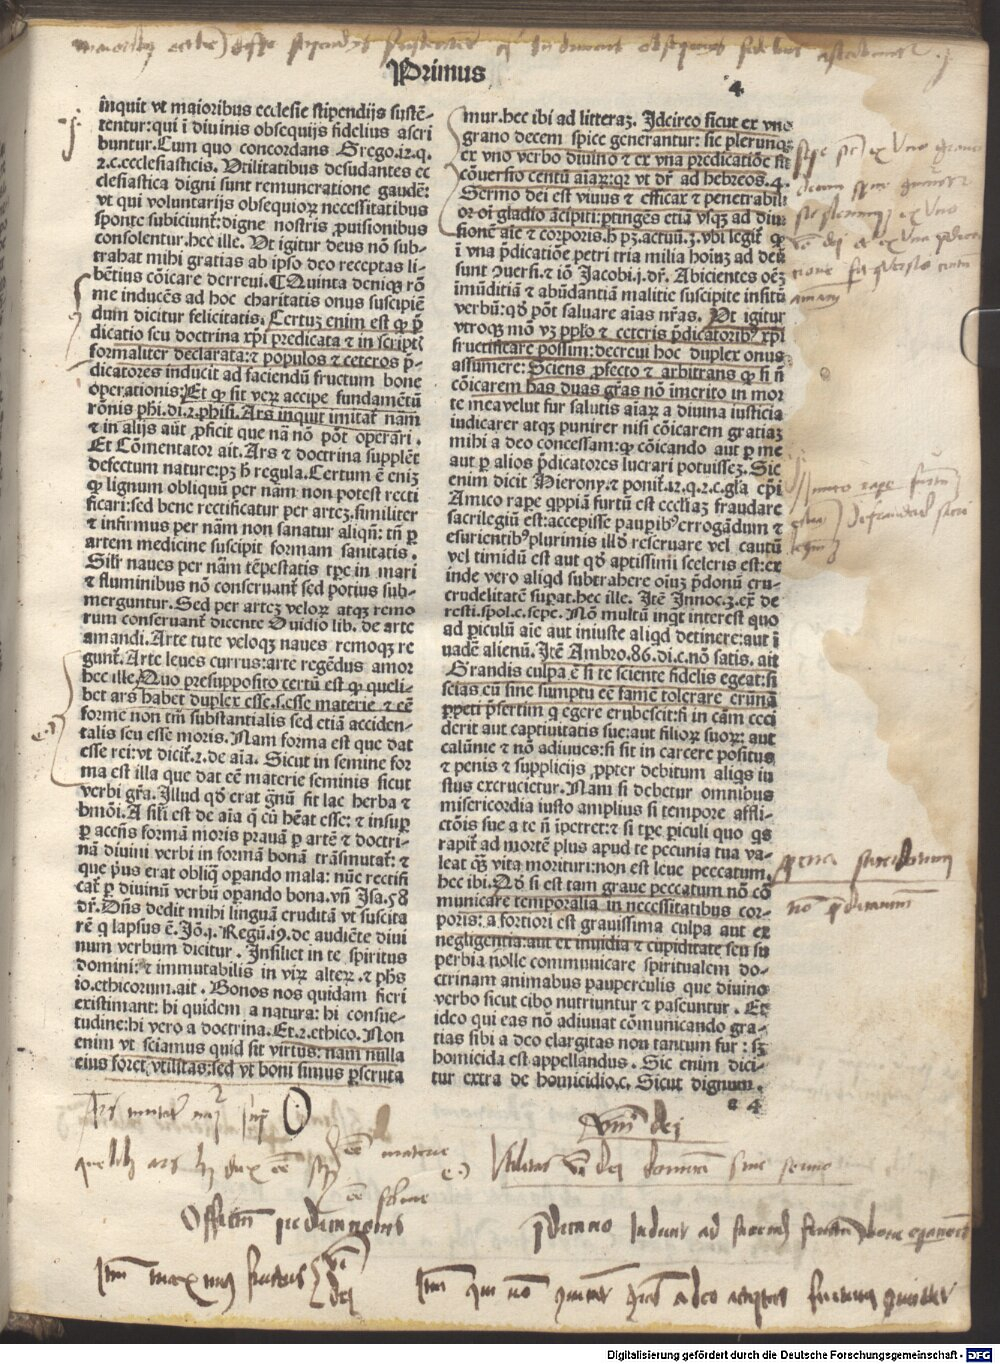 Primus
4
inquit vt maioribus ecclesie stipendijs sustē-
tentur:qui ī diuinis obsequijs fidelius ascri
buntur.Cum quo concordans Grego.12.q.
2.c.ecclesiasticis. Vtilitatibus desudantes ec
clesiastica digni sunt remuneratione gaudē:
vt qui voluntarijs obsequioꝝ necessitatibus
sponte subiciunt᷑:digne nostris ꝓuisionibus
consolentur.hec ille. Vt igitur deus nō sub-
trahat mihi gratias ab ipso deo receptas li-
bētius cōicare decreui. ¶Quinta deniqꝫ rō
me inducēs ad hoc charitatis onus suscipiē
dum dicitur felicitatis. Certuꝫ enim est ꝙ p̄
dicatio seu doctrina xp̄i predicata ⁊ in script᷑
formaliter declarata:⁊ populos ⁊ ceteros p̄-
dicatores inducit ad faciendū fructum bone
operationis. Et ꝙ sit verꝝ accipe fundamētū
rōnis ph̄i.di.2.phisi. Ars inquit imitat᷑ nām
⁊ in alijs aūt ꝓficit que nā nō pōt operari.
Et Cōmentator ait. Ars ⁊ doctrina supplēt
defectum nature:pꝫ h̄ regula. Certum ē enīꝫ
ꝙ lignum obliquū per nām non potest recti
ficari:sed bene rectificatur per arteꝫ.similiter
⁊ infirmus per nām non sanatur aliqn̄:tn̄ ꝑ
artem medicine suscipit formam sanitatis.
Silr̄ naues per nām tēpestatis tꝑe in mari
⁊ fluminibus nō conseruant᷑ sed potius sub-
merguntur. Sed per arteꝫ veloꝝ atqꝫ remo
rum conseruant᷑ dicente Ouidio lib. de arte
amandi. Arte tute veloqꝫ naues remoqꝫ re
gunt᷑. Arte leues currus:arte regēdus amor
hec ille. Quo presupposito certū est ꝙ queli-
bet ars habet duplex esse.s.esse materie ⁊ eē
forme non tm̄ substantialis sed etiā acciden-
talis seu esse moris. Nam forma est que dat
esse rei:vt dicit᷑.2.de aīa. Sicut in semine for
ma est illa que dat eē materie seminis sicut
verbi gr̄a. Illud qd̄ erat gn̄ū fit lac herba ⁊
hmōi. A sil̄i est de aīa q̄ cū h̄eat esse: ⁊ insuꝑ
ꝑ accn̄s formā moris prauā ꝑ artē ⁊ doctri-
nā diuini verbi in formā bonā trāsmutat᷑: ⁊
que p̄us erat obliq̄ opando mala: nūc rectifi
cat᷑ ꝑ diuinū verbū opando bona.vn̄ Isa.58
dr̄. Dn̄s dedit mihi linguā eruditā vt suscita
rē q̄ lapsus ē. Jō.1. Regū.19.de audiēte diui
num verbum dicitur. Insiliet in te spiritus
domini: ⁊ immutabilis in virꝝ alterꝝ.⁊ ph̄s
io.ethicorum.ait. Bonos nos quidam fieri
existimant: hi quidem a natura: hi consue-
tudine:hi vero a doctrina. Et.2.ethico. Non
enim vt sciamus quid sit virtus: nam nulla
eius foret vtilitas:sed vt boni simus ꝑscruta
mur.hec ibi ad litteraꝫ. Idcirco sicut ex vno
grano decem spice generantur: sic plerunqꝫ
ex vno verbo diuino ⁊ ex vna predicatiōe fit
cōuersio centū aīaꝝ:qꝛ vt dr̄ ad hebreos.4.
Sermo dei est viuus ⁊ efficax ⁊ penetrabili
or oī gladio ācipiti:ptīgēs etiā vsqꝫ ad diui
sionē aīe ⁊ corporis.h̄ pꝫ.actuū.3.vbi legit᷑ ꝙ
ī vna p̄dicatiōe petri tria milia hoīuꝫ ad deū
sunt ꝯuersi.⁊ iō Jacobi.1.dr̄. Abicientes oēꝫ
imūditiā ⁊ abūdantiā malitie suscipite insitū
verbū:qd̄ pōt saluare aīas nr̄as. Vt igitur
vtroqꝫ mō vꝫ ppl̄o ⁊ ceteris p̄dicatoribꝰ xp̄i
fructificare possim:decreui hoc duplex onus
assumere: Sciens ꝓfecto ⁊ arbitrans ꝙ si ñ
cōicarem has duas gr̄as nō īmerito in mor
te mea velut fur salutis aīaꝝ a diuina iusticia
iudicarer atqꝫ punirer nisi cōicarem gratiaꝫ
mihi a deo concessam:qꝫ cōicando aut ꝑ me
aut ꝑ alios p̄dicatores lucrari potuisseꝫ. Sic
enim dicit Hierony.⁊ ponit᷑.12.q.2.c.gl̄a ep̄i
Amico rape qp̄piā furtū est eccl̄iaꝫ fraudare
sacrilegiū est:accepisse paupibꝰ errogādum ⁊
esurientibꝰ plurimis ill̄d reseruare vel cautū
vel timidū est aut qd̄ aptissimi sceleris est:ex
inde vero aliqd subtrahere oīuꝫ p̄donū cru-
crudelitatē suꝑat.hec ille. Itē Innoc.3.ex̄ de
resti.spol.c.sepe. Nō multū inq̄t interest quo
ad ꝑiculū aīe aut iniuste aliqd detinere:aut ī
uadē alienū. Itē Ambro.86.di.c.nō satis. ait
Grandis culpa ē si te sciente fidelis egeat:si
scias eū sine sumptu eē famē tolerare erūnā
ꝑpeti p̄sertim q̄ egere erubescit:si in cām ceci
derit aut captiuitatis sue:aut filioꝝ suoꝝ: aut
calūnie ⁊ nō adiuues:si sit in carcere positus
⁊ penis ⁊ supplicijs ꝓpter debitum aliqs iu
stus excrucietur. Nam si debetur omnibus
misericordia iusto amplius si tempore affli-
ctōis sue a te ñ īpetret:⁊ si tꝑe ꝑiculi quo q̄s
rapit᷑ ad mortē plus apud te pecunia tua va-
leat q̄ꝫ vita morituri:non est leue peccatum.
hec ibi. Qd̄ si est tam graue peccatum nō cō
municare temporalia in necessitatibus cor-
poris: a fortiori est grauissima culpa aut ex
negligentia:aut ex inuidia ⁊ cupiditate seu su
perbia nolle communicare spiritualem do-
ctrinam animabus pauperculis que diuino
verbo sicut cibo nutriuntur ⁊ pascuntur. Et
ideo qui eas nō adiuuat cōmunicando gra-
tias sibi a deo elargitas non tantum fur: sꝫ
homicida est appellandus. Sic enim dici-
tur extra de homicidio.c. Sicut dignum.
a 4
Ars imitat᷑
quelibet ars hꝫ duplex eē
eē materie
eē forme
Verbum dei
Vtilitas
Officium predicationis
fructus
Digitalisierung gefördert durch die Deutsche Forschungsgemeinschaft - DFG